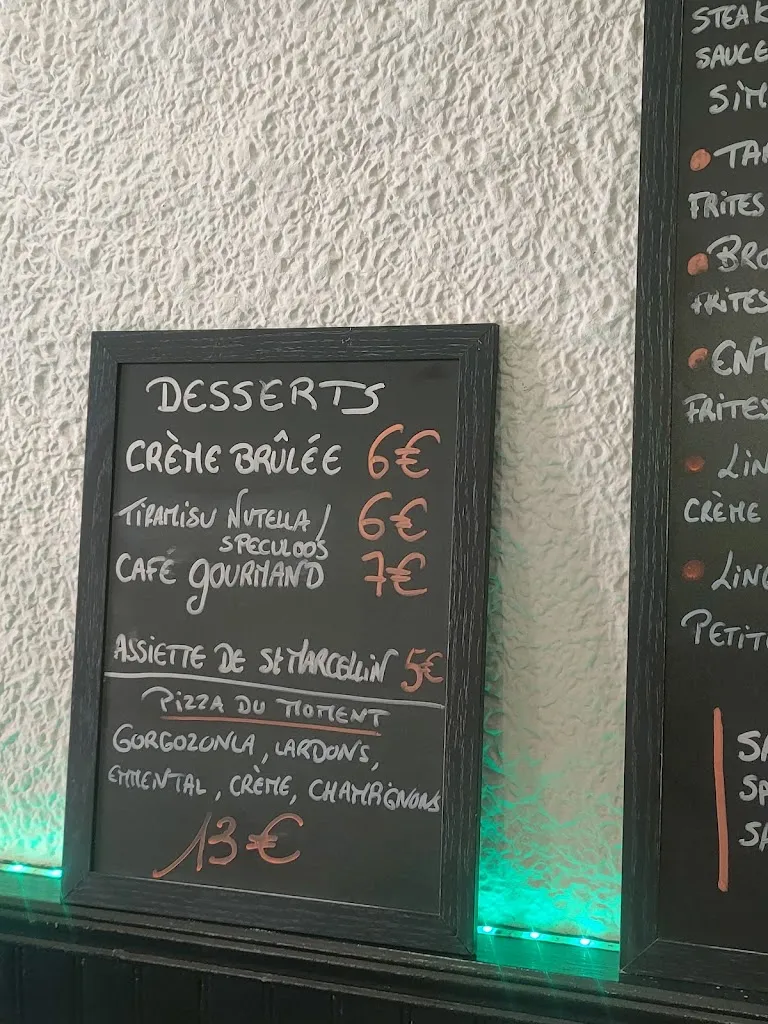 DESSERTS
CRÈME BRÛLÉE 6€
TIRAMISU NUTELLA / 6€
SPECULOOS
CAFÉ GOURMAND 7€
ASSIETTE DE ST MARCELLIN 5€
PIZZA DU MOMENT
GORGOZONLA, LARDONS,
EMMENTAL, CRÈME, CHAMPIGNONS
13€
STEAK
SAUCE
FRITES
FRITES
FRITES
CRÈME